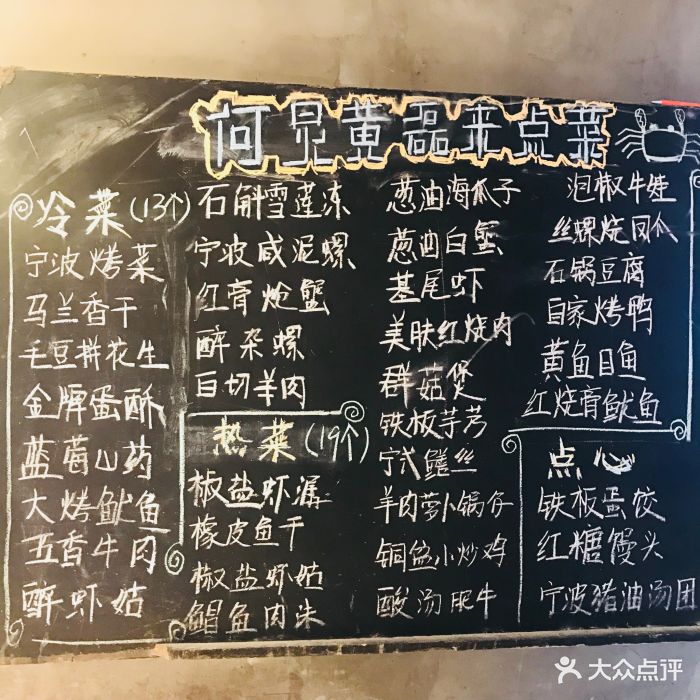 何炅黄磊来点菜
冷菜(13个)
宁波烤菜
马兰香干
毛豆拼花生
金牌蛋酥
蓝莓山药
大烤鱿鱼
五香牛肉
醉虾姑
石斛雪莲冻
宁波咸泥螺
红膏炝蟹
醉杂螺
白切羊肉
热菜(19个)
椒盐虾潺
橡皮鱼干
椒盐虾姑
鲳鱼肉朱
葱油海瓜子
葱油白蟹
基尾虾
美肤红烧肉
群菇煲
铁板芋艿
宁式鳝丝
羊肉萝卜锅仔
铜盆小炒鸡
酸汤肥牛
泡椒牛蛙
丝螺烧凤爪
石锅豆腐
自家烤鸭
黄鱼目鱼
红烧膏鱿鱼
点心
铁板蛋饺
红糖馒头
宁波猪油汤团
大众点评